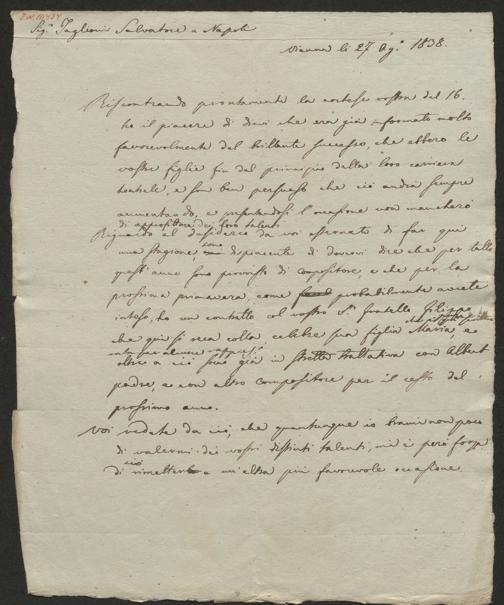 Sigr. Taglioni Salvatore a Napoli
Vienna le 27 Agt. 1838.
Riscontrando prontamente la cortese vostra del 16.
ho il piacere di dirvi che era già informato molto
favorevolmente del brillante successo, che ebbero le
vostre figlie fin dal principio della loro carriera
teatrale, e son ben persuaso che ciò andrà sempre
aumentando, e presentandosi l'occasione non mancherò
di approfittare dei loro talenti.
Riguardo al desiderio da voi esternato di far qui
una stagione sono dispiacente di dovervi dire che per tutto
quest'anno sono provvisto di compositore, e che per la
prossima primavera, come probabilmente avrete
inteso, ho un contratto col vostro Sr. fratello Filippo
che qui si reca colla celebre sua figlia Maria, e
oltre a ciò sono già in stretta trattativa con Albert
padre, e con altro compositore per il resto del
prossimo anno.
Voi vedete da ciò, che quantunque io brami non poco
di valermi dei vostri distinti talenti, mi è però forza
di rimettere ciò a un'altra più favorevole occasione.